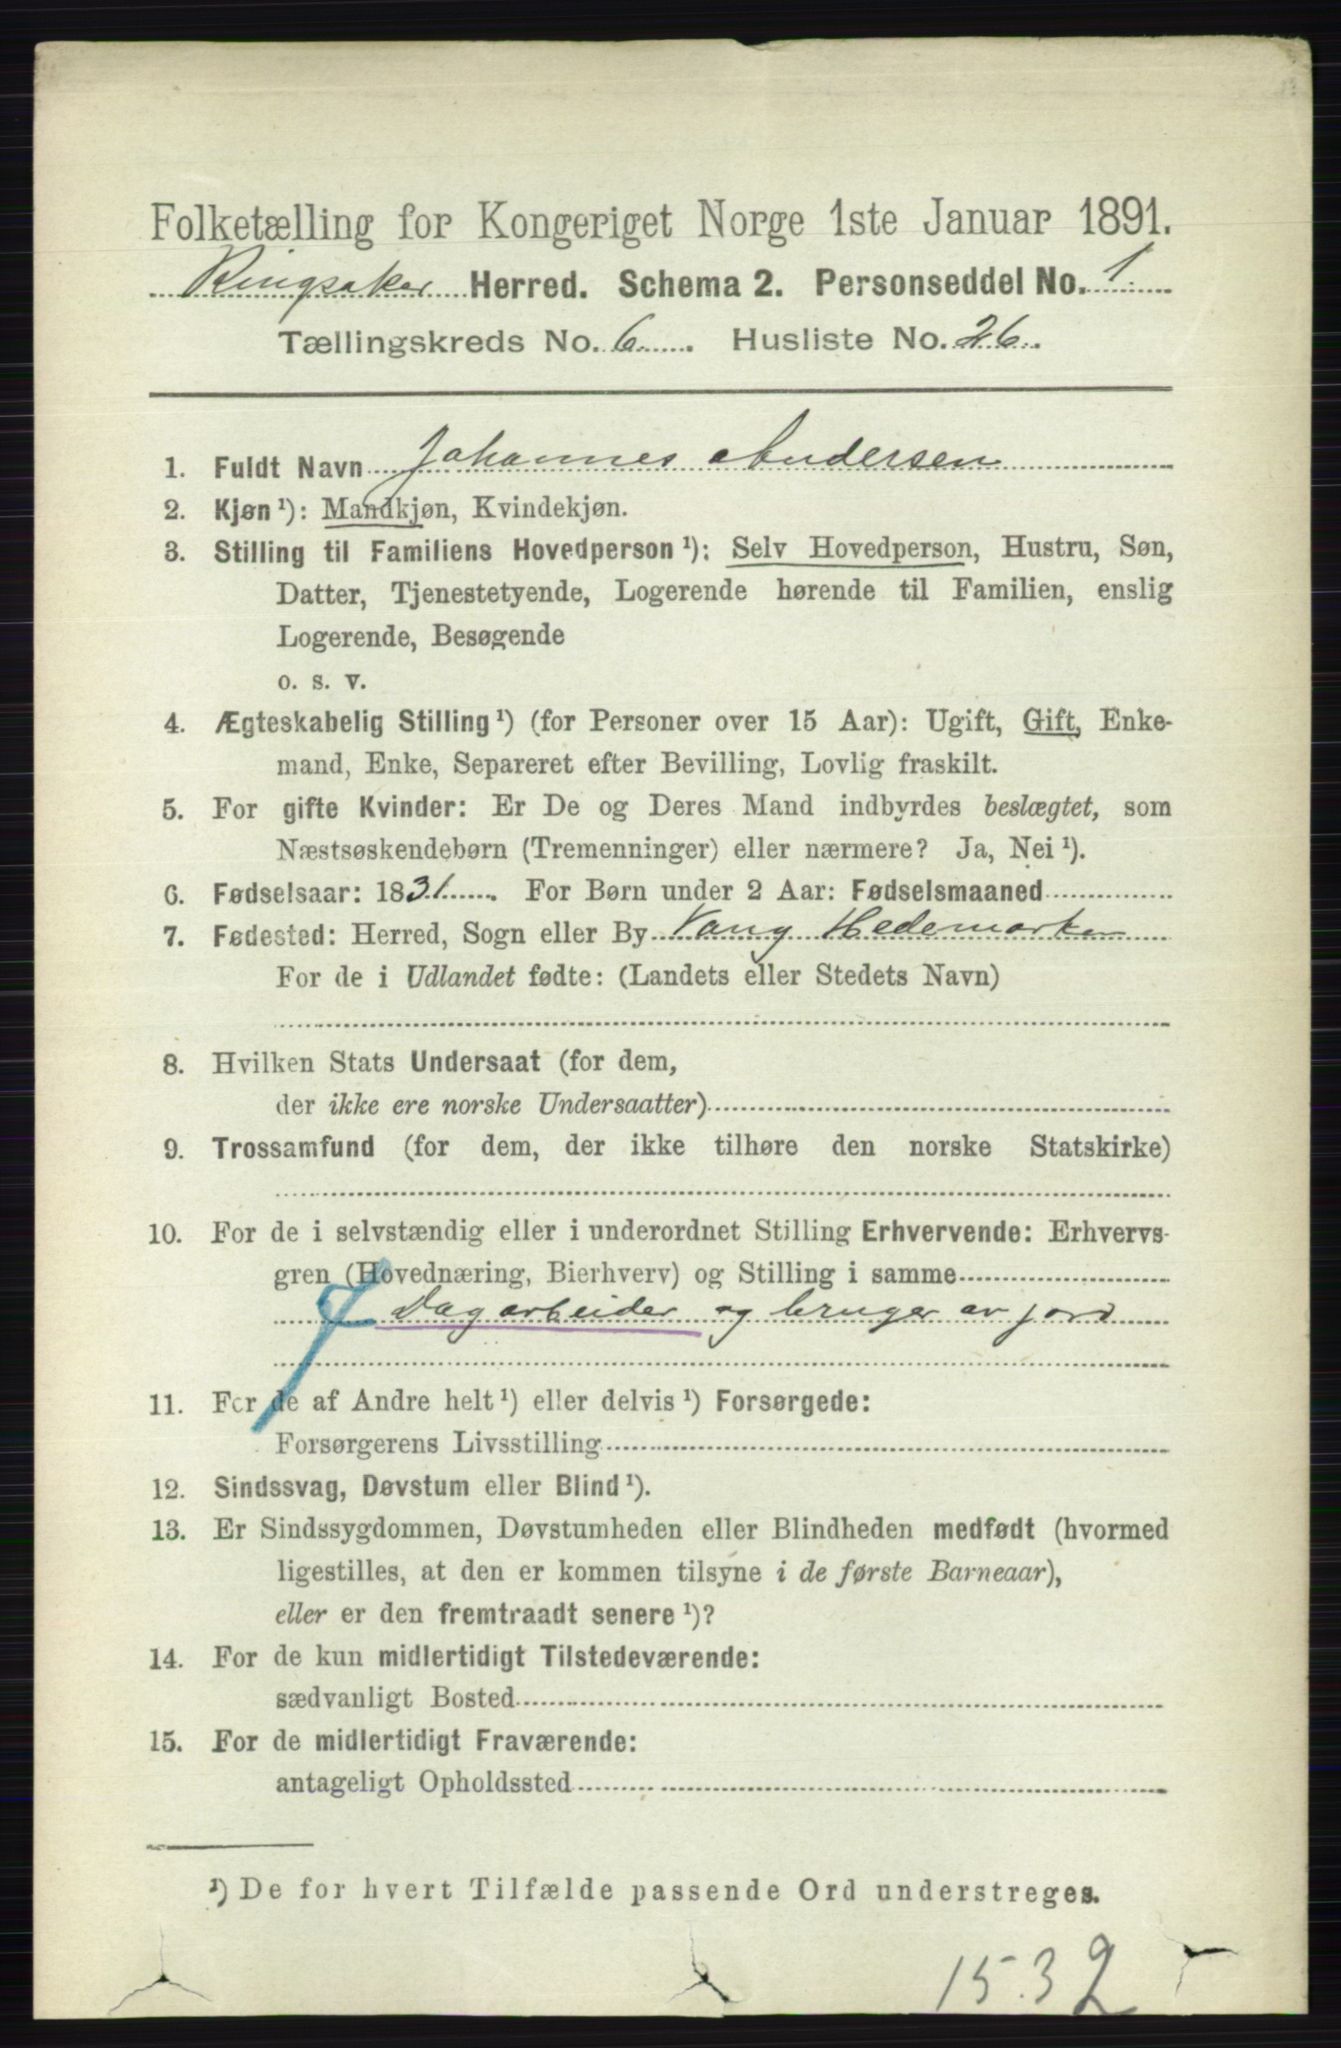 Folketælling for Kongeriget Norge 1ste Januar 1891.
Ringsaker Herred. Schema 2. Personseddel No. 1.
Tællingskreds No. 6. Husliste No. 26.
1. Fuldt Navn Johannes Andersen
2. Kjøn ¹): Mandkjøn, Kvindekjøn.
3. Stilling til Familiens Hovedperson ¹): Selv Hovedperson, Hustru, Søn,
Datter, Tjenestetyende, Logerende hørende til Familien, enslig
Logerende, Besøgende
o. s. v.
4. Ægteskabelig Stilling ¹) (for Personer over 15 Aar): Ugift, Gift, Enke-
mand, Enke, Separeret efter Bevilling, Lovlig fraskilt.
5. For gifte Kvinder: Er De og Deres Mand indbyrdes beslægtet, som
Næstsøskendebørn (Tremenninger) eller nærmere? Ja, Nei ¹).
6. Fødselsaar: 1831. For Børn under 2 Aar: Fødselsmaaned
7. Fødested: Herred, Sogn eller By Vang Hedemarken
For de i Udlandet fødte: (Landets eller Stedets Navn)
8. Hvilken Stats Undersaat (for dem,
der ikke ere norske Undersaatter)
9. Trossamfund (for dem, der ikke tilhøre den norske Statskirke)
10. For de i selvstændig eller i underordnet Stilling Erhvervende: Erhvervs-
gren (Hovednæring, Bierhverv) og Stilling i samme
Dagarbeider og bruger av jord
11. For de af Andre helt ¹) eller delvis ¹) Forsørgede:
Forsørgerens Livsstilling
12. Sindssvag, Døvstum eller Blind ¹).
13. Er Sindssygdommen, Døvstumheden eller Blindheden medfødt (hvormed
ligestilles, at den er kommen tilsyne i de første Barneaar),
eller er den fremtraadt senere ¹)?
14. For de kun midlertidigt Tilstedeværende:
sædvanligt Bosted
15. For de midlertidigt Fraværende:
antageligt Opholdssted
¹) De for hvert Tilfælde passende Ord understreges.
1532